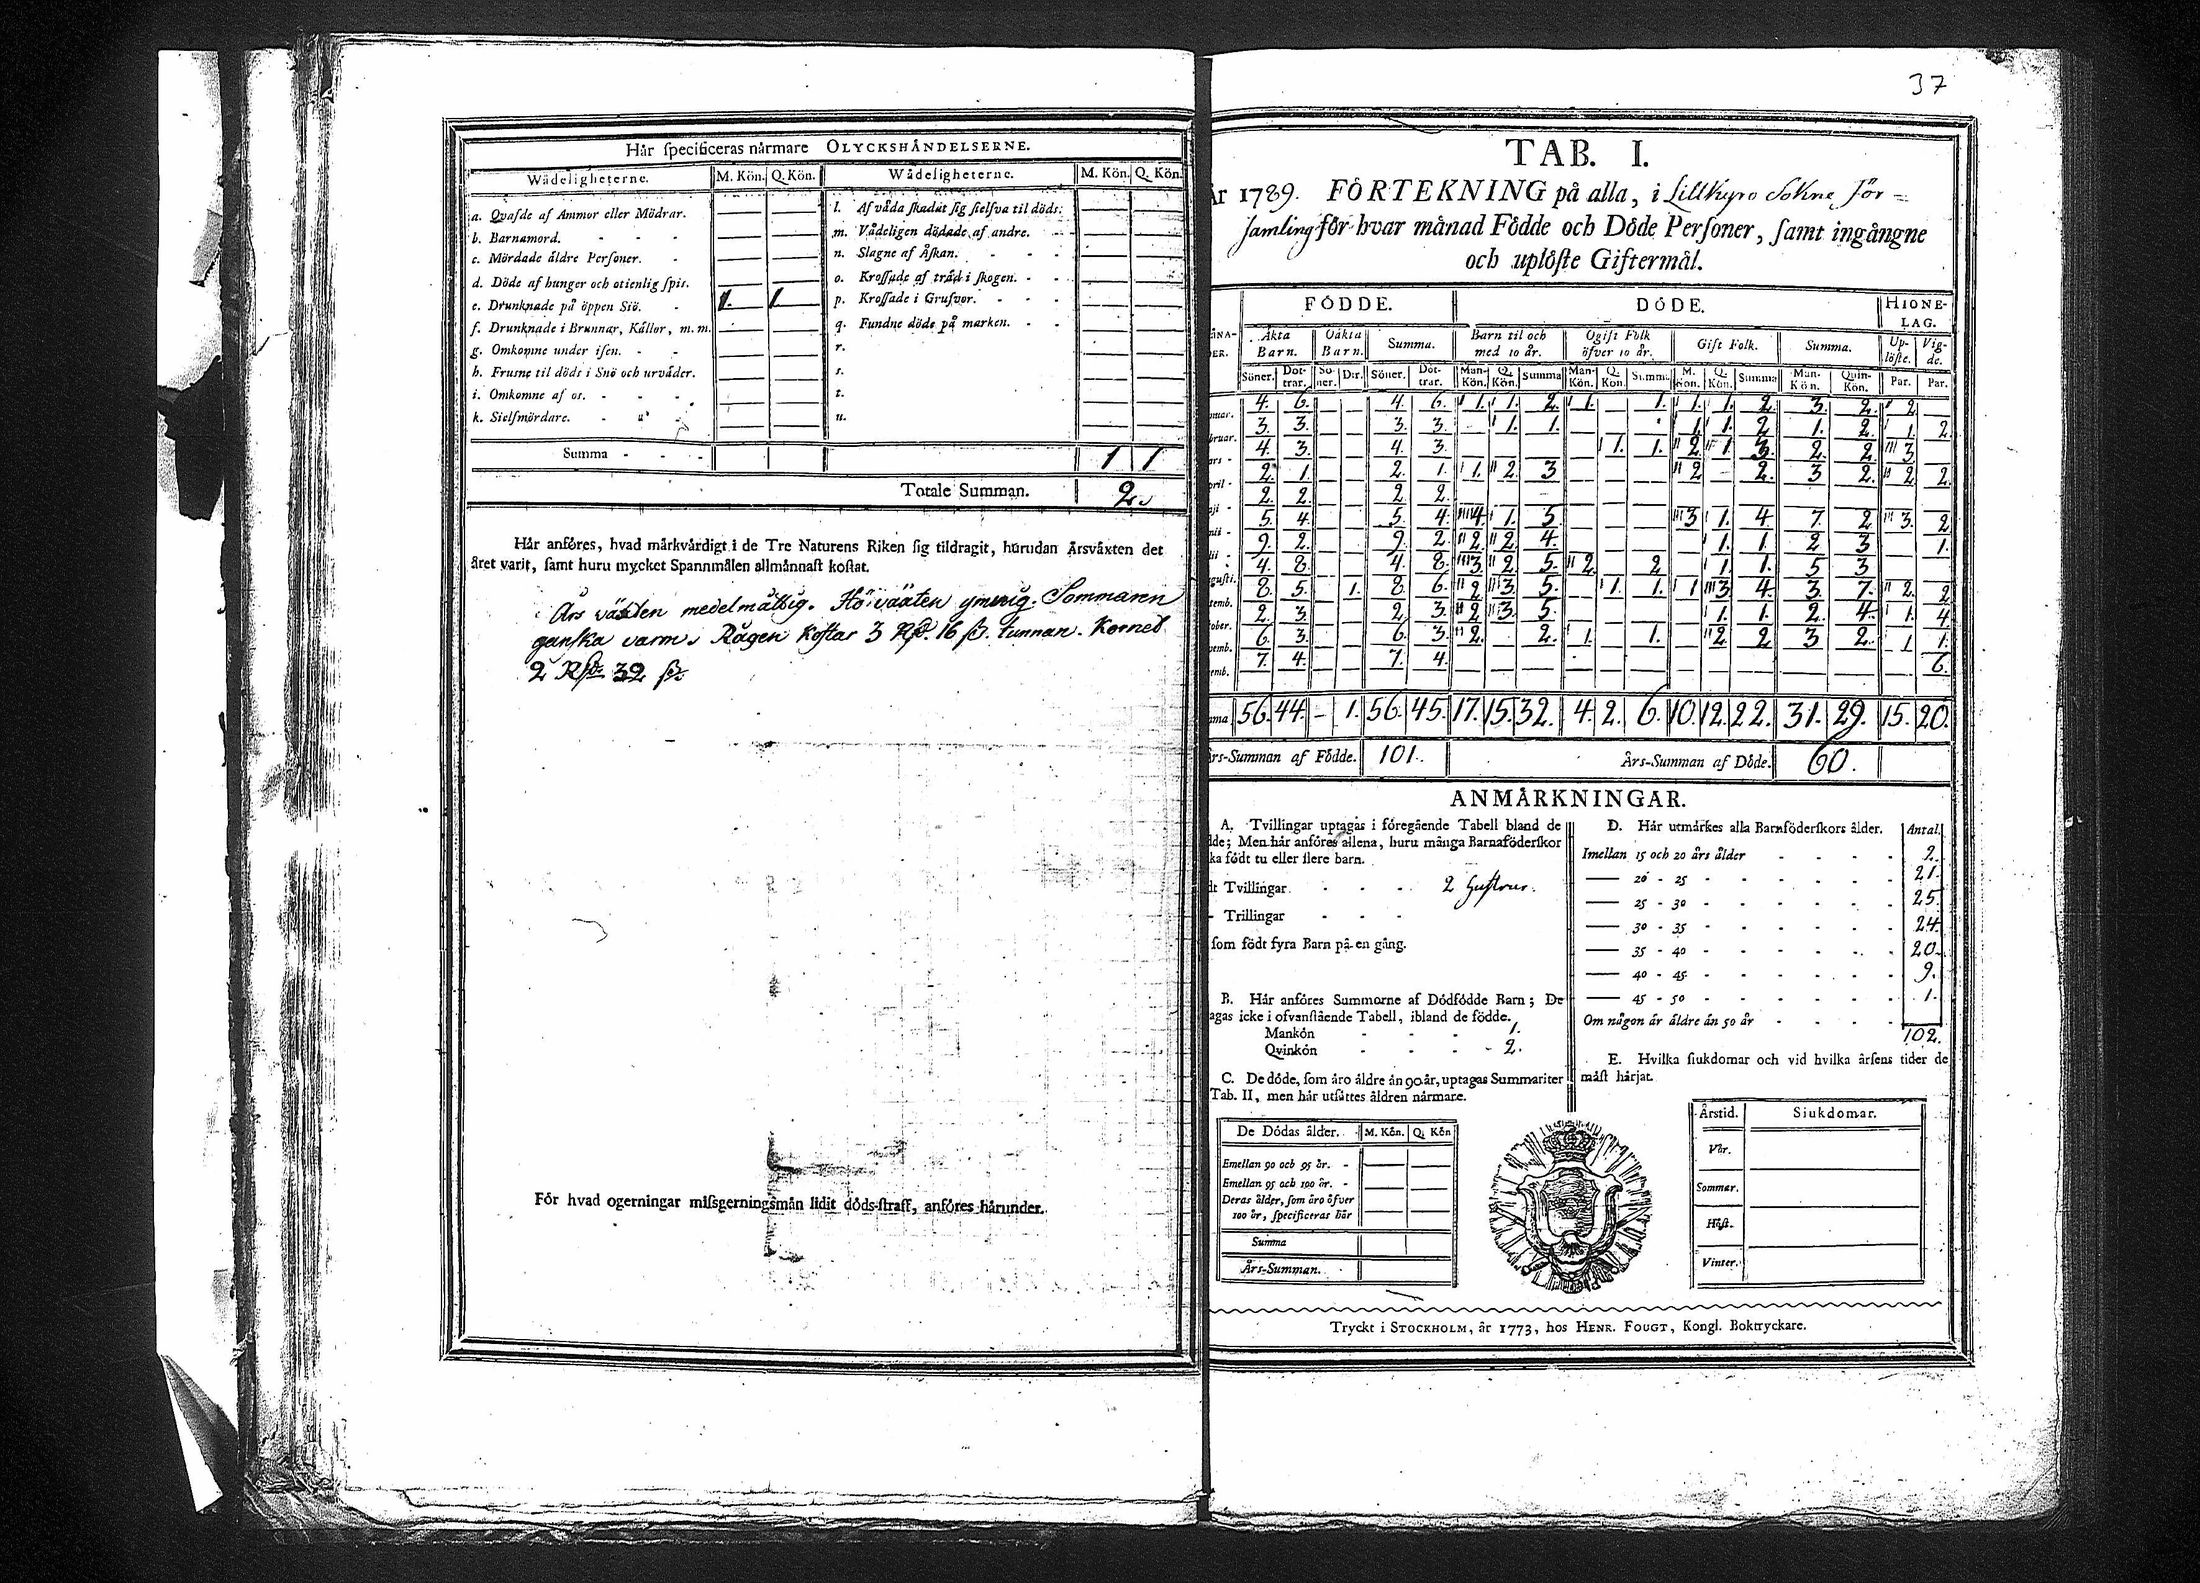 Här specificeras närmare OLYCKSHÄNDELSERNE.
Wådeligheterne. M. Kön. Q. Kön. Wådeligheterne. M. Kön. Q. Kön.
a. Qvafde af Ammor eller Mödrar. — —
b. Barnamord. — —
c. Mördade äldre Personer. — —
d. Döde af hunger och otienlig spis. — —
e. Drunknade på öppen Siö. 1. 1
f. Drunknade i Brunnar, Källor, m. m. — —
g. Omkomne under isen. — —
h. Frusne til döds i Snö och urväder. — —
i. Omkomne af os. — —
k. Sielfmördare. — —
l. Af våda skadat sig sielfva til döds. — —
m. Vådeligen dödade af andre. — —
n. Slagne af Åskan. — —
o. Krossade af träd i skogen. — —
p. Krossade i Grufvor. — —
q. Fundne döde på marken. — —
r.
s.
t.
u.
Summa - - - 1 1
Totale Summan. 2.
Här anföres, hvad märkvärdigt i de Tre Naturens Riken sig tildragit, hurudan Årsväxten det
året varit, samt huru mycket Spannmålen allmännast kostat.
Års växten medelmåttig. Hö växten ymnig. Sommaren
ganska varm. Rågen kostar 3 Rd. 16 ß. tunnan. Kornet
2 Rd 32 ß.
För hvad ogerningar missgerningsmän lidit döds-straff, anföres härunder.
37
TAB. I.
År 1789. FÖRTEKNING på alla, i Lillkyro Sokne För=
samling för hvar månad Födde och Döde Personer, samt ingångne
och uplöste Giftermål.
FÖDDE. DÖDE. HIONE-
LAG.
Äkta
Barn. Oäkta
Barn. Summa. Barn til och
med 10 år. Ogift Folk
öfver 10 år. Gift Folk. Summa. Up-
löste. Vig-
de.
Söner. Döt-
trar. Sö-
ner. Dr. Söner. Döt-
trar. Man-
Kön. Q.
Kön. Summa Man-
Kön. Q.
Kön. Summa M.
Kön. Q.
Kön. Summa Man-
Kön. Quin-
Kön. Par. Par.
nuar. 4. 6. — — 4. 6. 1. 1. 2. 1. — 1. 1. 1. 2. 3. 2. 2. —
bruar. 3. 3. — — 3. 3. — 1. 1. — — — 1. 1. 2 1. 2. 1. 2.
ars - 4. 3. — — 4. 3. — — — — 1. 1. 2. 1. 3. 2. 2. 3. —
pril - 2. 1. — — 2. 1. 1. 2. 3 — — — 2 — 2. 3 2. 2. 2.
aji - 2. 2. — — 2. 2. — — — — — — — — — — — — —
nii - 5. 4. — — 5. 4. 4. 1. 5. — — — 3 1. 4. 7. 2. 3. 2
lii - 9. 2. — — 9. 2. 2. 2. 4. — — — — 1. 1. 2 3 — 1.
gusti. 4. 8. — — 4. 8. 3. 2. 5. 2. — 2 — 1. 1. 5 3 — —
temb. 8. 5. — 1. 8. 6. 2. 3. 5. — 1. 1. 1 3 4. 3. 7. 2. 2
tober. 2. 3. — — 2. 3. 2 3. 5. — — — — 1. 1. 2 4. 1. 4
vemb. 6. 3. — — 6. 3. 2. — 2. 1. — 1. — 2. 2 3 2. 1 1.
emb. 7. 4. — — 7. 4. — — — — — — — — — — — — 6.
mma 56. 44. — 1. 56. 45. 17. 15. 32. 4. 2. 6. 10. 12. 22. 31. 29. 15. 20.
års-Summan af Födde. 101. Års-Summan af Döde. 60.
ANMÄRKNINGAR.
A. Tvillingar uptagas i föregående Tabell bland de
dde; Men här anföres allena, huru många Barnaföderskor
ka födt tu eller flere barn.
dt Tvillingar - - - 2 hustrur.
- Trillingar - - -
som födt fyra Barn på en gång.
B. Här anföres Summorne af Dödfödde Barn; De
agas icke i ofvanstående Tabell, ibland de födde.
Mankön - - - 1.
Qvinkön - - - 2.
C. De döde, som äro äldre än 90 år, uptagas Summariter
Tab. II, men här utsättes åldren närmare.
De Dödas ålder. M. Kön. Q. Kön
Emellan 90 och 95 år. - — —
Emellan 95 och 100 år. - — —
Deras ålder, som äro öfver
100 år, specificeras här — —
Summa
Års-Summan.
D. Här utmärkes alla Barnföderskors ålder. Antal.
Imellan 15 och 20 års ålder - - - - 2.
— 20 - 25 - - - - 21.
— 25 - 30 - - - - 25.
— 30 - 35 - - - - 24.
— 35 - 40 - - - - 20.
— 40 - 45 - - - - 9.
— 45 - 50 - - - - 1.
Om någon är äldre än 50 år - - - -
102.
E. Hvilka siukdomar och vid hvilka årsens tider de
mäst härjat.
Årstid. Siukdomar.
Vår.
Sommar.
Höst.
Vinter.
Tryckt i STOCKHOLM, år 1773, hos HENR. FOUGT, Kongl. Boktryckare.